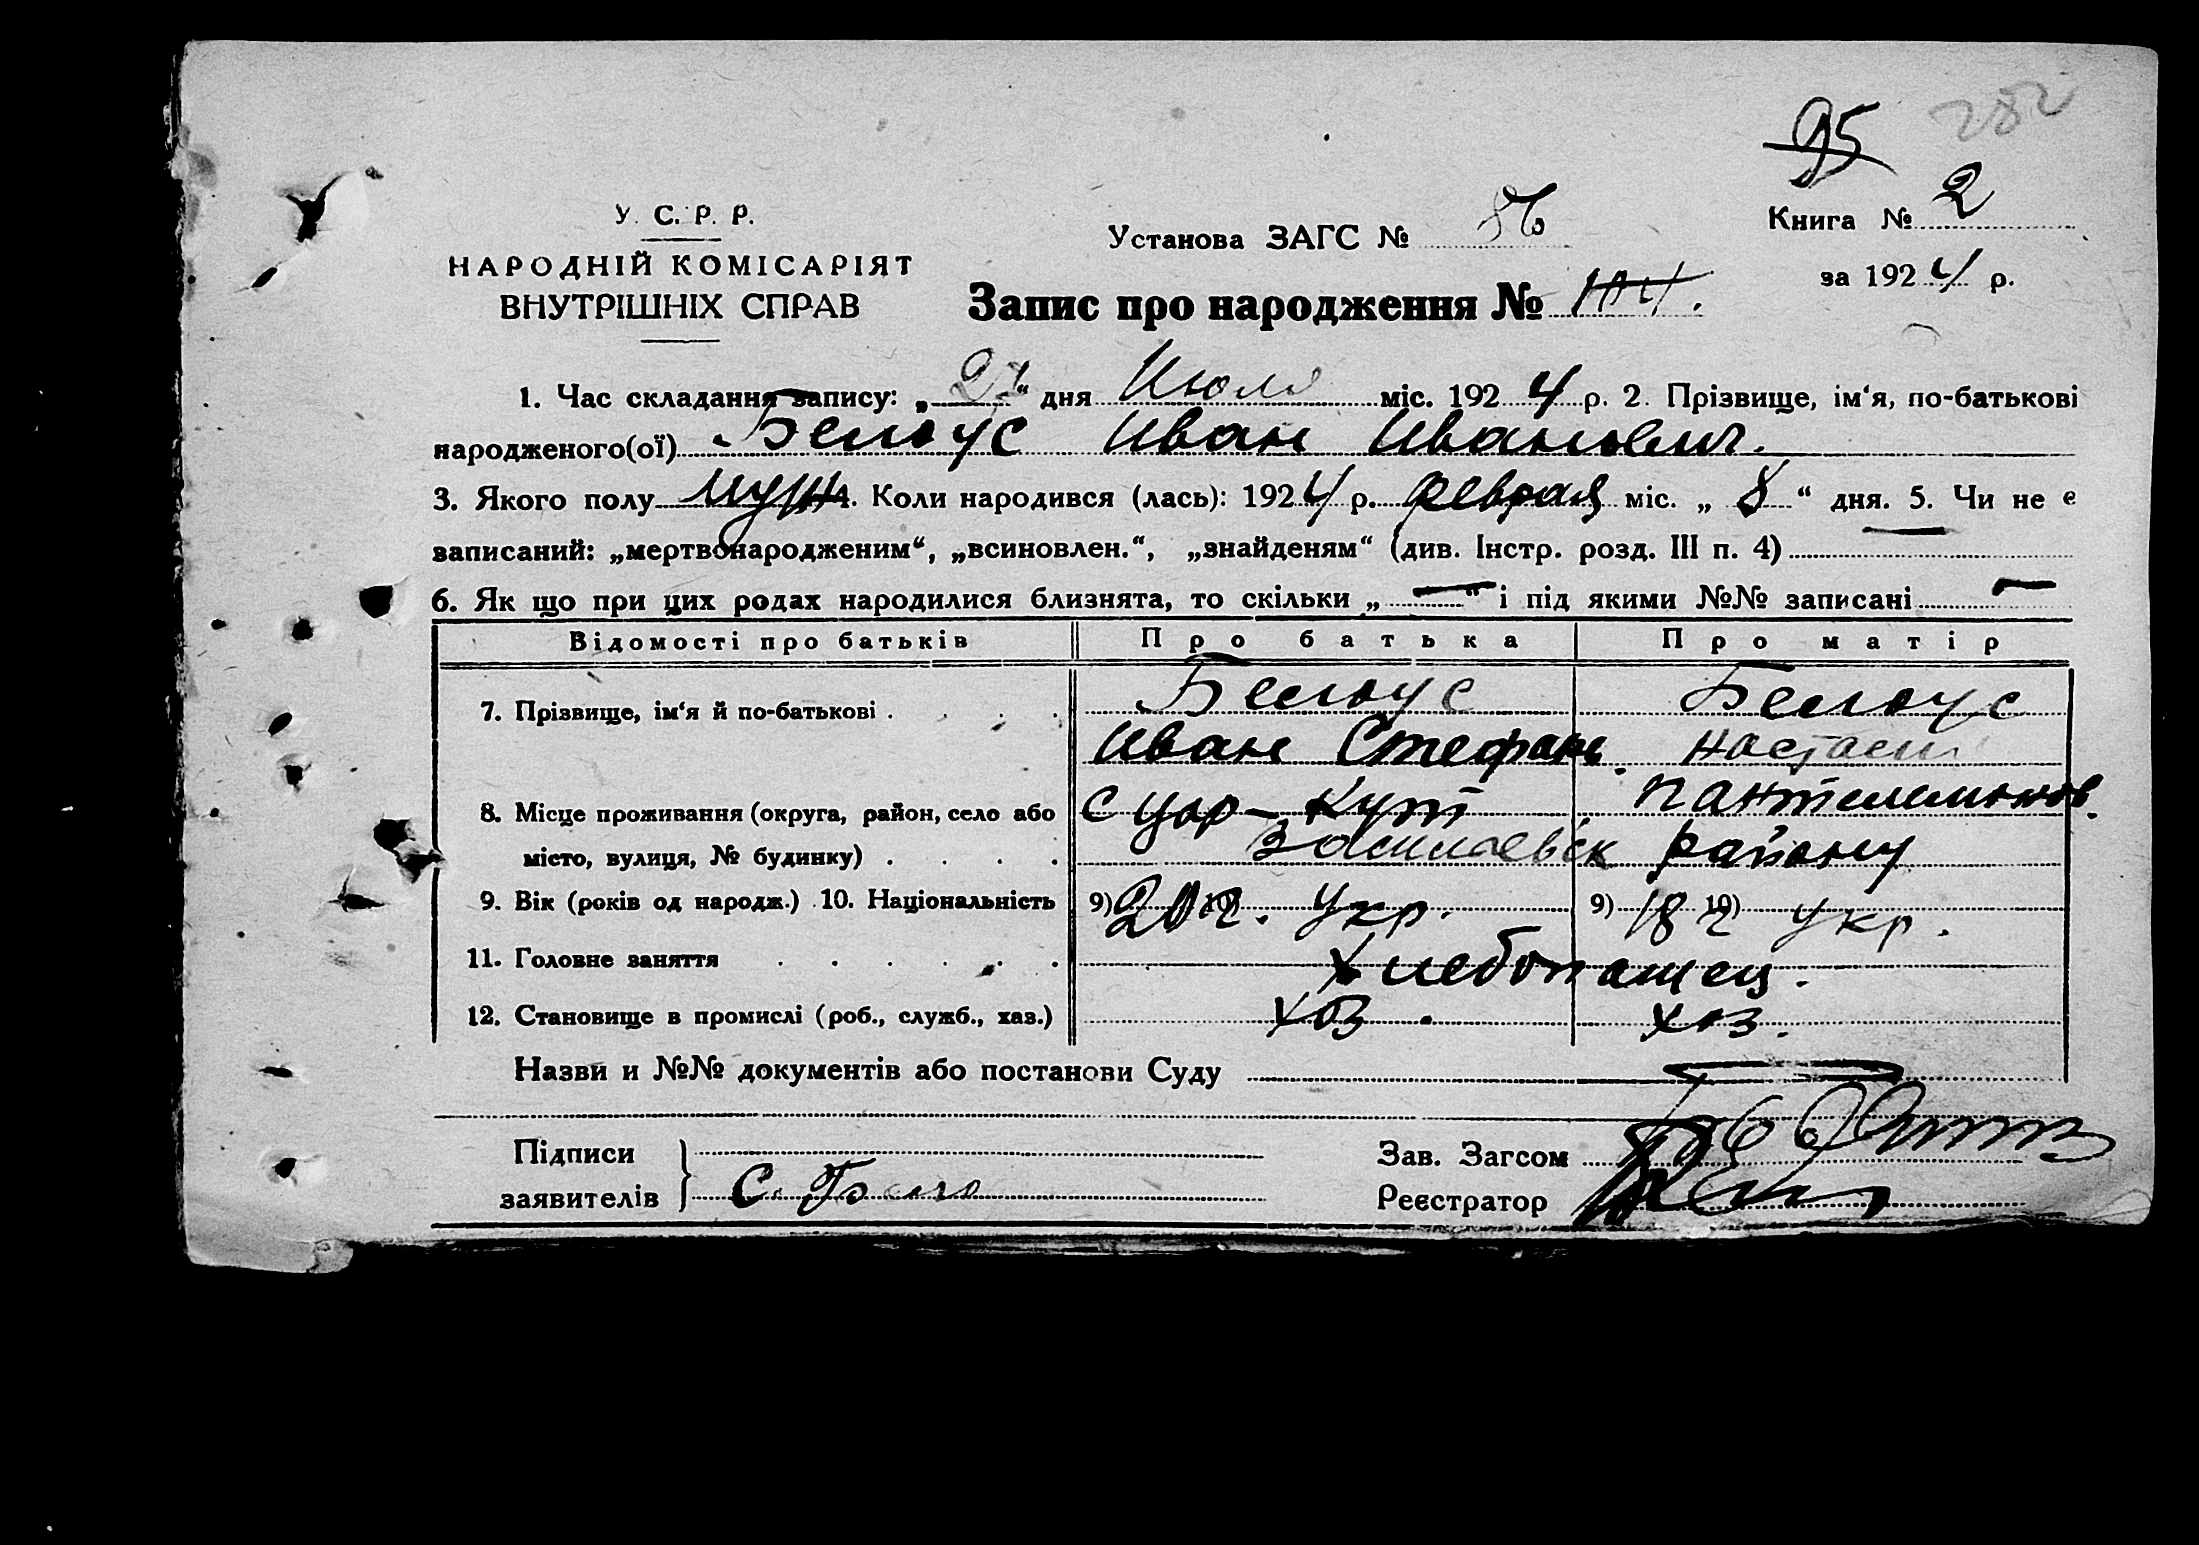 95 282
У. С. Р. Р.
НАРОДНІЙ КОМІСАРІЯТ
ВНУТРІШНІХ СПРАВ
Установа ЗАГС № 86
Книга № 2
за 1924 р.
Запис про народження № 104.
1. Час складання запису: „21“ дня Июля міс. 1924 р. 2. Прізвище, ім‘я, по-батькові
народженого(ої) Белоус Иван Иванович.
3. Якого полу муж 4. Коли народився (лась): 1924 р. февраля міс. „8“ дня. 5. Чи не є
записаний: „мертвонародженим“, „всиновлен.“, „знайденям“ (див. Інстр. розд. III п. 4) —
6. Як що при цих родах народилися близнята, то скільки „—“ і під якими №№ записані —
Відомості про батьків Про батька Про матір
7. Прізвище, ім‘я й по-батькові . Белоус Белоус
Иван Стефан. Настасия
Пантелемонов.
8. Місце проживання (округа, район, село або с Цар-Кут
місто, вулиця, № будинку) . Василаевск району
9. Вік (років од народж.) 10. Національність 9) 20 г. Укр. 9) 18 г 10) Укр.
11. Головне заняття Хлебопашец.
12. Становище в промислі (роб., служб., хаз.) хоз. хоз.
Назви и №№ документів або постанови Суду —
Підписи
заявителів С. Бело
Зав. Загсом
Реєстратор